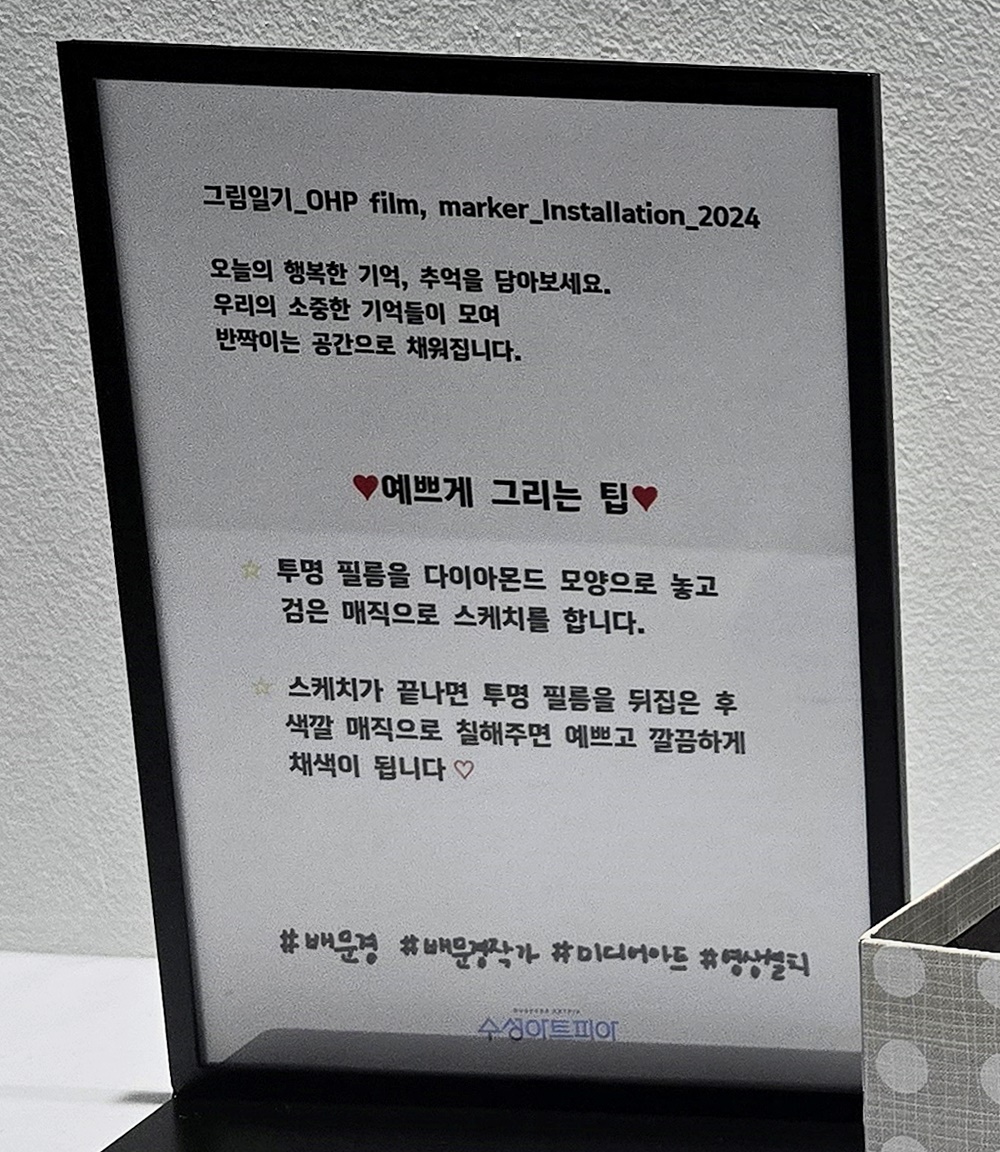 그림일기_OHP film, marker_Installation_2024
오늘의 행복한 기억, 추억을 담아보세요.
우리의 소중한 기억들이 모여
반짝이는 공간으로 채워집니다.
♥예쁘게 그리는 팁♥
☆ 투명 필름을 다이아몬드 모양으로 놓고
검은 매직으로 스케치를 합니다.
☆ 스케치가 끝나면 투명 필름을 뒤집은 후
색깔 매직으로 칠해주면 예쁘고 깔끔하게
채색이 됩니다♡
#배문경 #배문경작가 #미디어아트 #영상설치
SUSEONG ARTPIA
수성아트피아